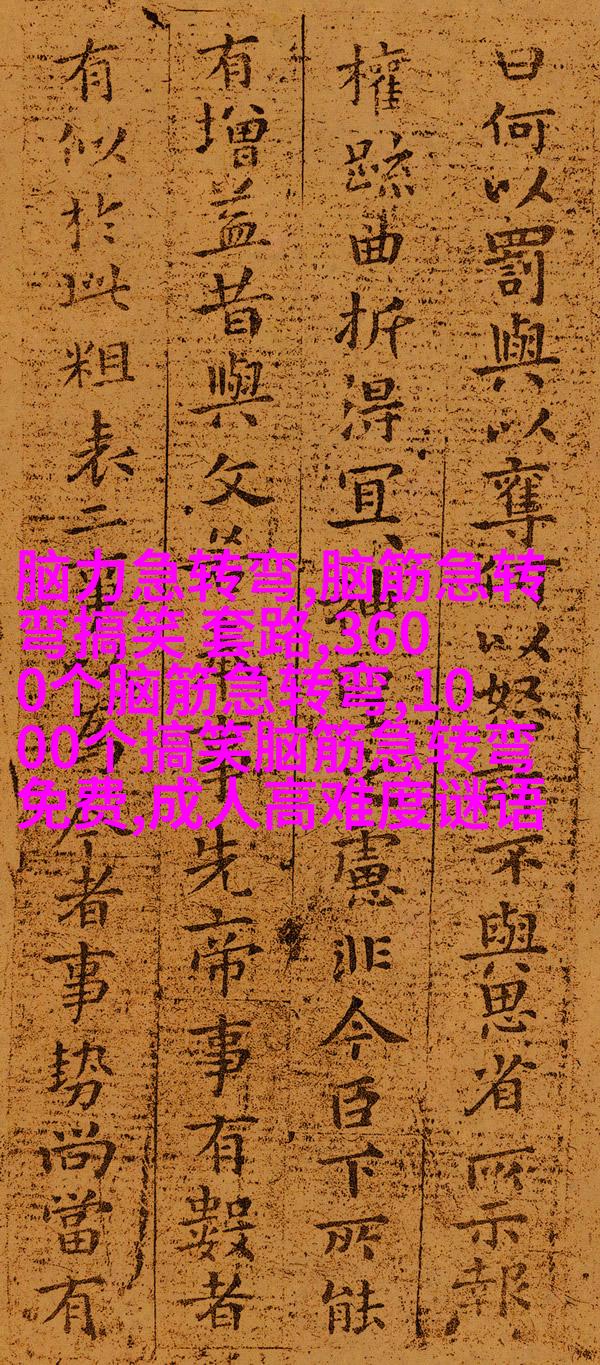 曰何以罰與以奪何以怒不與思省所示報
權疏曲折得冝慮非今臣下所能
有增益昔與文若事先帝事有數者
有似於此粗表二事為今者事勢尚當有
脑力急转弯,脑筋急转
弯搞笑 套路,360
0个脑筋急转弯,10
00个搞笑脑筋急转弯
免费,成人高难度谜语